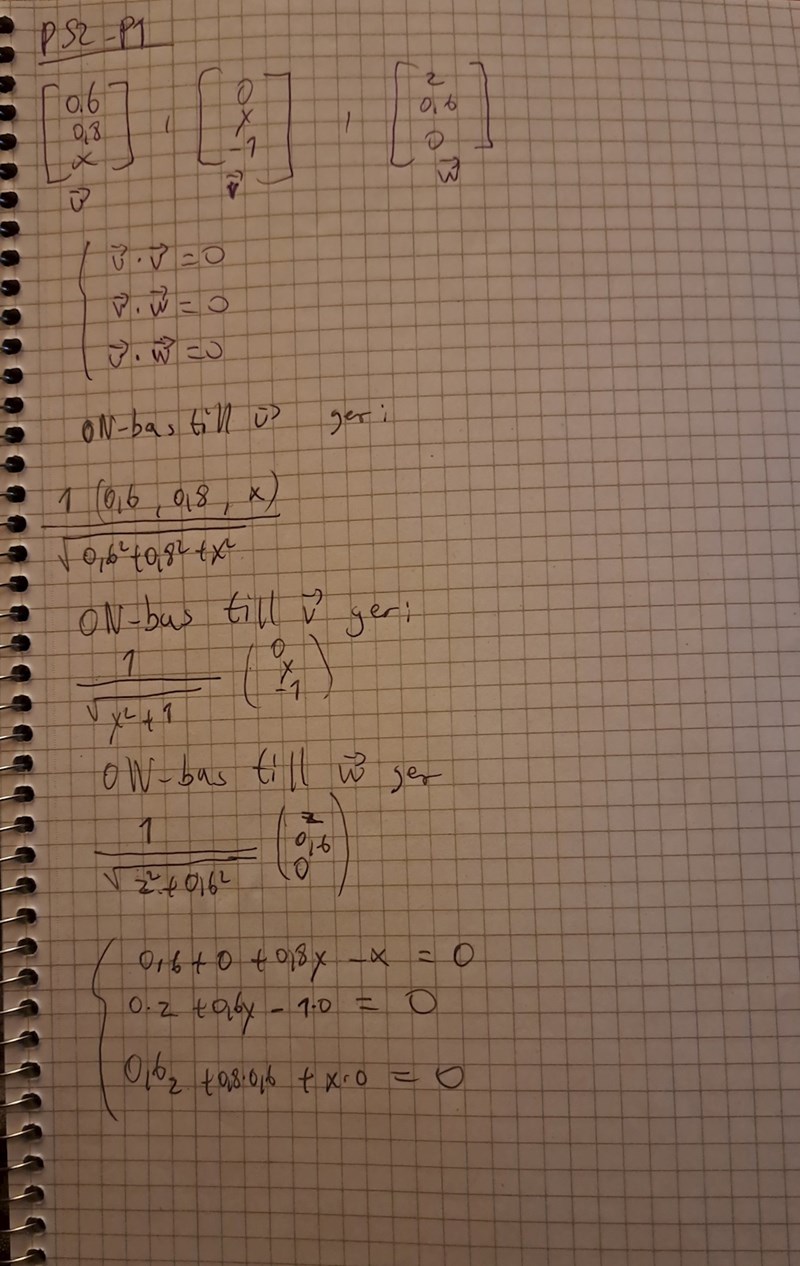 PS2-P1
[0,6 0,8 x] , [0 y -1] , [z 0,6 0]
u⃗ v⃗ w⃗
u⃗ · v⃗ = 0
v⃗ · w⃗ = 0
u⃗ · w⃗ = 0
ON-bas till u⃗ ger:
1 (0,6 , 0,8 , x)
√0,6²+0,8²+x²
ON-bas till v⃗ ger:
1 / √y²+1 (0 y -1)
ON-bas till w⃗ ger
1 / √z²+0,6² (z 0,6 0)
0,6+0 +0,8y -x = 0
0·z +0,6y - 1·0 = 0
0,6z +0,8·0,6 + x·0 = 0